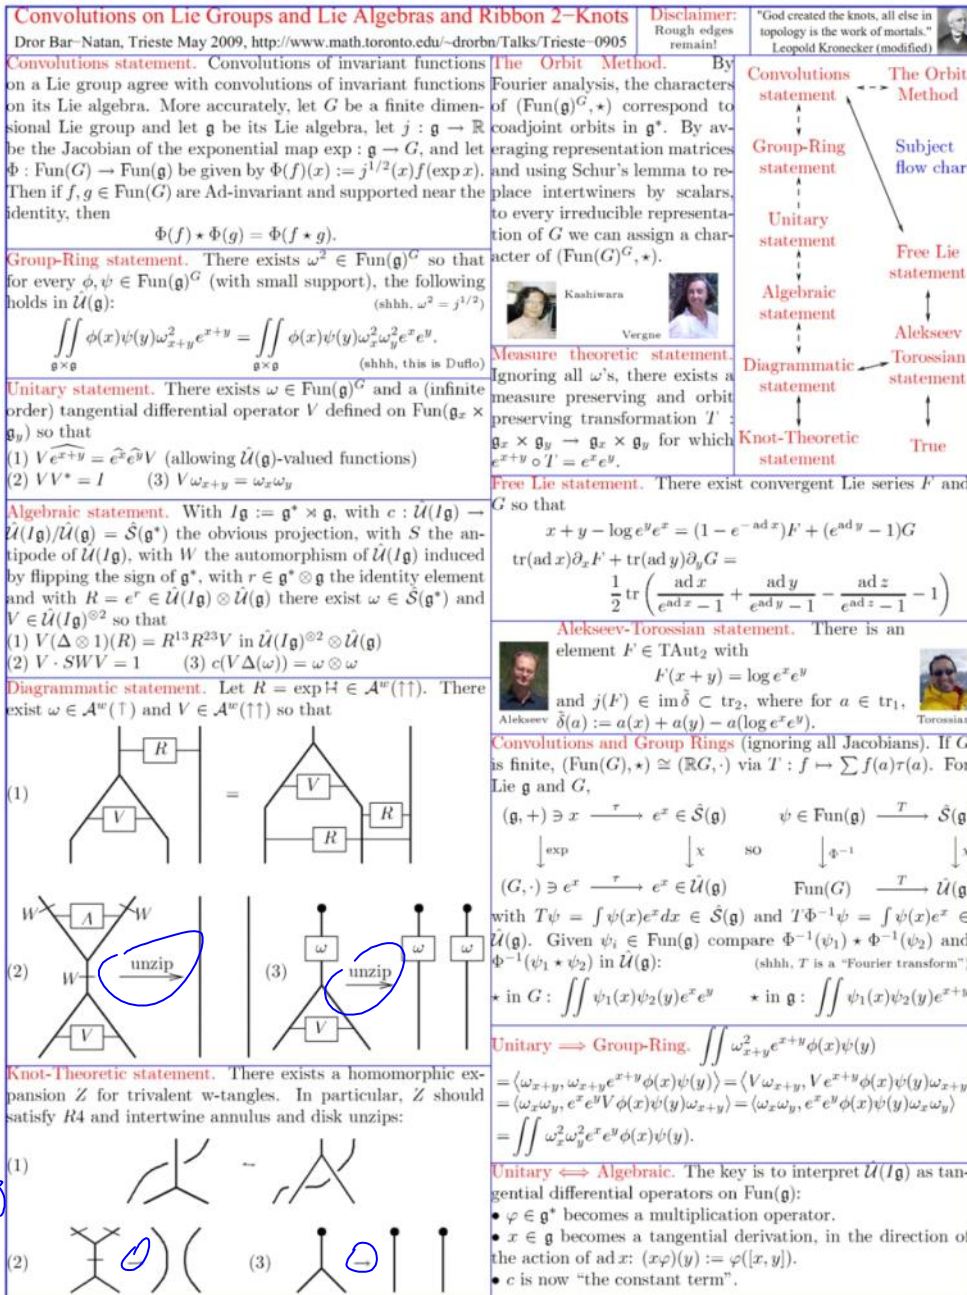 Convolutions on Lie Groups and Lie Algebras and Ribbon 2−Knots
Dror Bar−Natan, Trieste May 2009, http://www.math.toronto.edu/~drorbn/Talks/Trieste−0905
Disclaimer:
Rough edges
remain!
"God created the knots, all else in
topology is the work of mortals."
Leopold Kronecker (modified)
Convolutions statement. Convolutions of invariant functions
on a Lie group agree with convolutions of invariant functions
on its Lie algebra. More accurately, let G be a finite dimen-
sional Lie group and let 𝔤 be its Lie algebra, let j : 𝔤 → ℝ
be the Jacobian of the exponential map exp : 𝔤 → G, and let
Φ : Fun(G) → Fun(𝔤) be given by Φ(f)(x) := j^{1/2}(x)f(exp x).
Then if f, g ∈ Fun(G) are Ad-invariant and supported near the
identity, then
Φ(f) ⋆ Φ(g) = Φ(f ⋆ g).
Group-Ring statement. There exists ω² ∈ Fun(𝔤)^G so that
for every φ, ψ ∈ Fun(𝔤)^G (with small support), the following
holds in Û(𝔤): (shhh, ω² = j^{1/2})
∬_{𝔤×𝔤} φ(x)ψ(y)ω²_{x+y}e^{x+y} = ∬_{𝔤×𝔤} φ(x)ψ(y)ω²_xω²_ye^xe^y.
(shhh, this is Duflo)
Unitary statement. There exists ω ∈ Fun(𝔤)^G and a (infinite
order) tangential differential operator V defined on Fun(𝔤_x ×
𝔤_y) so that
(1) V\widehat{e^{x+y}} = \widehat{e^x}\widehat{e^y}V (allowing Û(𝔤)-valued functions)
(2) VV* = I (3) Vω_{x+y} = ω_xω_y
Algebraic statement. With I𝔤 := 𝔤* ⋊ 𝔤, with c : Û(I𝔤) →
Û(I𝔤)/Û(𝔤) = Ŝ(𝔤*) the obvious projection, with S the an-
tipode of Û(I𝔤), with W the automorphism of Û(I𝔤) induced
by flipping the sign of 𝔤*, with r ∈ 𝔤* ⊗ 𝔤 the identity element
and with R = e^r ∈ Û(I𝔤) ⊗ Û(𝔤) there exist ω ∈ Ŝ(𝔤*) and
V ∈ Û(I𝔤)^{⊗2} so that
(1) V(Δ ⊗ 1)(R) = R^{13}R^{23}V in Û(I𝔤)^{⊗2} ⊗ Û(𝔤)
(2) V · SWV = 1 (3) c(VΔ(ω)) = ω ⊗ ω
Diagrammatic statement. Let R = exp ∈ 𝒜^w(↑↑). There
exist ω ∈ 𝒜^w(↑) and V ∈ 𝒜^w(↑↑) so that
(1) R V = V R R
(2) W Λ W W unzip V
(3) ω unzip ω ω V
Knot-Theoretic statement. There exists a homomorphic ex-
pansion Z for trivalent w-tangles. In particular, Z should
satisfy R4 and intertwine annulus and disk unzips:
(1)
(2) → (3) →
The Orbit Method. By
Fourier analysis, the characters
of (Fun(𝔤)^G, ⋆) correspond to
coadjoint orbits in 𝔤*. By av-
eraging representation matrices
and using Schur's lemma to re-
place intertwiners by scalars,
to every irreducible representa-
tion of G we can assign a char-
acter of (Fun(G)^G, ⋆).
Kashiwara
Vergne
Measure theoretic statement.
Ignoring all ω's, there exists a
measure preserving and orbit
preserving transformation T :
𝔤_x × 𝔤_y → 𝔤_x × 𝔤_y for which
e^{x+y} ∘ T = e^xe^y.
Convolutions
statement
The Orbit
Method
Group-Ring
statement
Subject
flow char
Unitary
statement
Free Lie
statement
Algebraic
statement
Alekseev
Torossian
statement
Diagrammatic
statement
Knot-Theoretic
statement
True
Free Lie statement. There exist convergent Lie series F and
G so that
x + y − log e^ye^x = (1 − e^{−ad x})F + (e^{ad y} − 1)G
tr(ad x)∂_xF + tr(ad y)∂_yG =
1/2 tr ( ad x/(e^{ad x} − 1) + ad y/(e^{ad y} − 1) − ad z/(e^{ad z} − 1) − 1 )
Alekseev-Torossian statement. There is an
element F ∈ TAut₂ with
F(x + y) = log e^xe^y
and j(F) ∈ im δ̃ ⊂ tr₂, where for a ∈ tr₁,
δ̃(a) := a(x) + a(y) − a(log e^xe^y).
Alekseev
Torossian
Convolutions and Group Rings (ignoring all Jacobians). If G
is finite, (Fun(G), ⋆) ≅ (ℝG, ·) via T : f ↦ ∑ f(a)τ(a). For
Lie 𝔤 and G,
(𝔤, +) ∋ x →τ e^x ∈ Ŝ(𝔤) ψ ∈ Fun(𝔤) →T Ŝ(𝔤
↓exp ↓χ so ↓Φ^{−1}
(G, ·) ∋ e^x →τ e^x ∈ Û(𝔤) Fun(G) →T Û(𝔤
with Tψ = ∫ψ(x)e^xdx ∈ Ŝ(𝔤) and TΦ^{−1}ψ = ∫ψ(x)e^x ∈
Û(𝔤). Given ψ_i ∈ Fun(𝔤) compare Φ^{−1}(ψ₁) ⋆ Φ^{−1}(ψ₂) and
Φ^{−1}(ψ₁ ⋆ ψ₂) in Û(𝔤): (shhh, T is a "Fourier transform")
⋆ in G : ∬ψ₁(x)ψ₂(y)e^xe^y ⋆ in 𝔤 : ∬ψ₁(x)ψ₂(y)e^{x+y}
Unitary ⟹ Group-Ring. ∬ω²_{x+y}e^{x+y}φ(x)ψ(y)
= ⟨ω_{x+y}, ω_{x+y}e^{x+y}φ(x)ψ(y)⟩ = ⟨Vω_{x+y}, Ve^{x+y}φ(x)ψ(y)ω_{x+y}⟩
= ⟨ω_xω_y, e^xe^yVφ(x)ψ(y)ω_{x+y}⟩ = ⟨ω_xω_y, e^xe^yφ(x)ψ(y)ω_xω_y⟩
= ∬ω²_xω²_ye^xe^yφ(x)ψ(y).
Unitary ⟺ Algebraic. The key is to interpret Û(I𝔤) as tan-
gential differential operators on Fun(𝔤):
• φ ∈ 𝔤* becomes a multiplication operator.
• x ∈ 𝔤 becomes a tangential derivation, in the direction of
the action of ad x: (xφ)(y) := φ([x, y]).
• c is now "the constant term".